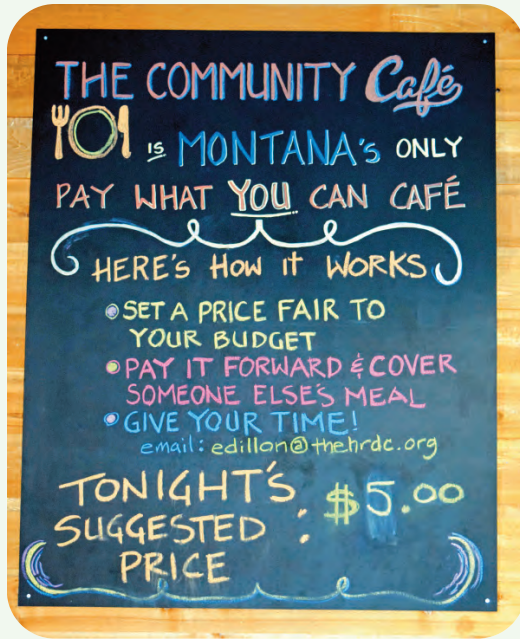 THE COMMUNITY Café
IS MONTANA'S ONLY
PAY WHAT YOU CAN CAFÉ
HERE'S HOW IT WORKS
SET A PRICE FAIR TO
YOUR BUDGET
PAY IT FORWARD & COVER
SOMEONE ELSE'S MEAL
GIVE YOUR TIME!
email: edillon@thehrdc.org
TONIGHT'S
SUGGESTED : $5.00
PRICE